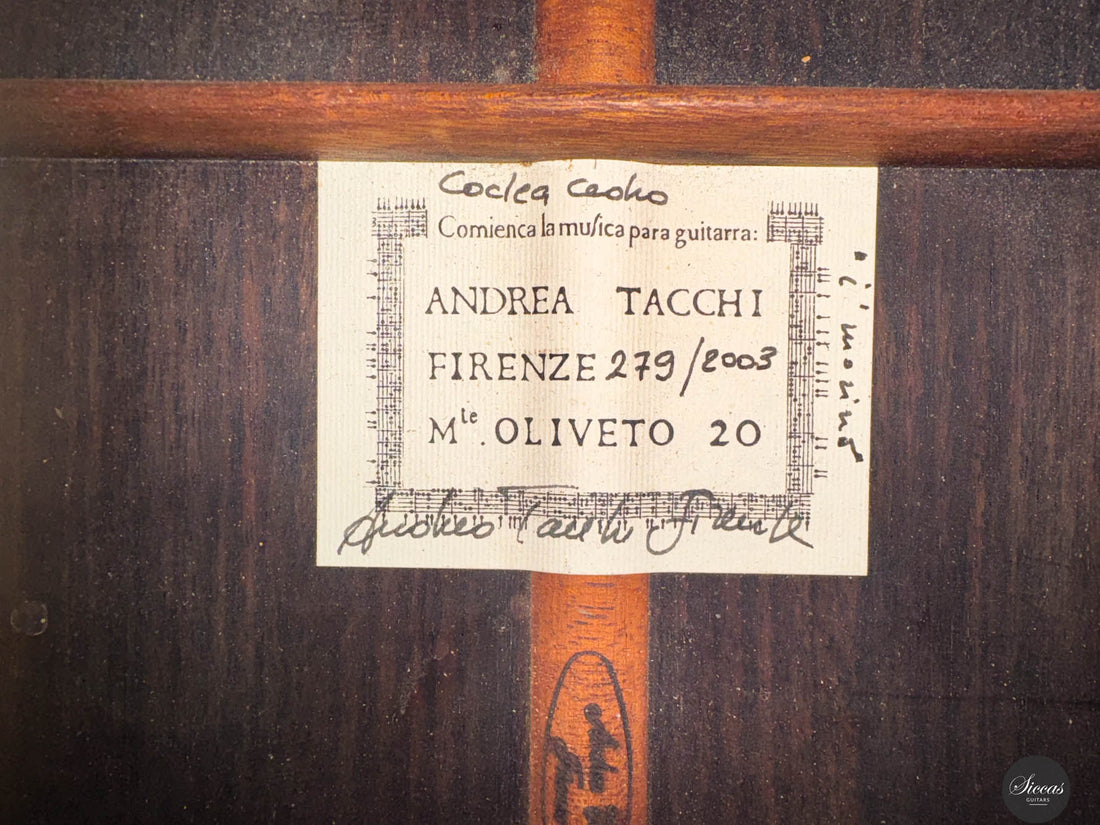 Coclea
Comienca la muſica para guitarra:
ANDREA TACCHI
FIRENZE 279/2003
Mte. OLIVETO 20
Andrea Tacchi Firenze
Siccas
GUITARS